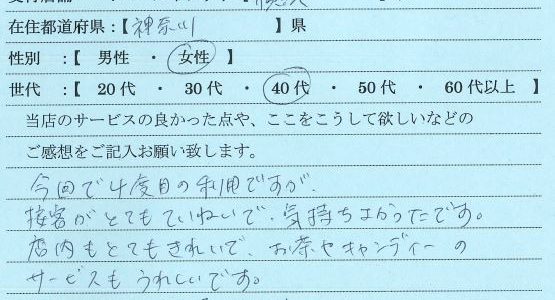 在住都道府県：【 神奈川 】県
性別 ：【 男性 ・ 女性 】
世代 ：【 20代 ・ 30代 ・ 40代 ・ 50代 ・ 60代以上 】
当店のサービスの良かった点や、ここをこうして欲しいなどの
ご感想をご記入お願い致します。
今回で4度目の利用ですが、
接客がとてもていねいで、気持ちよかったです。
店内もとてもきれいで、お茶やキャンディーの
サービスもうれしいです。